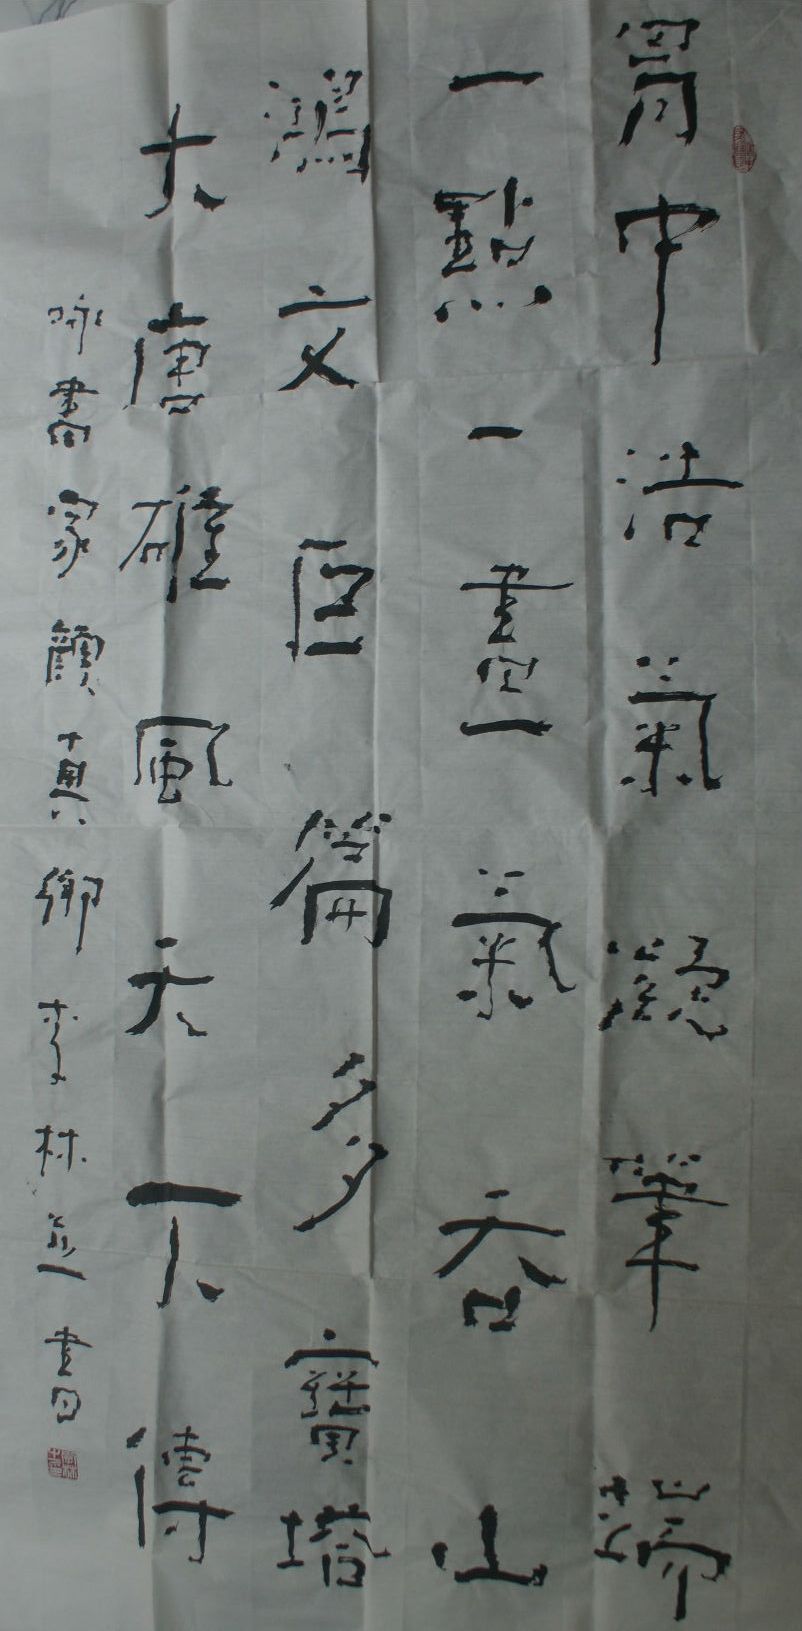 胷中浩氣凝筆端
一點一畫氣吞山
鴻文巨篇多寶塔
大唐雄風天下傳
咏書家顏真卿 李林並書